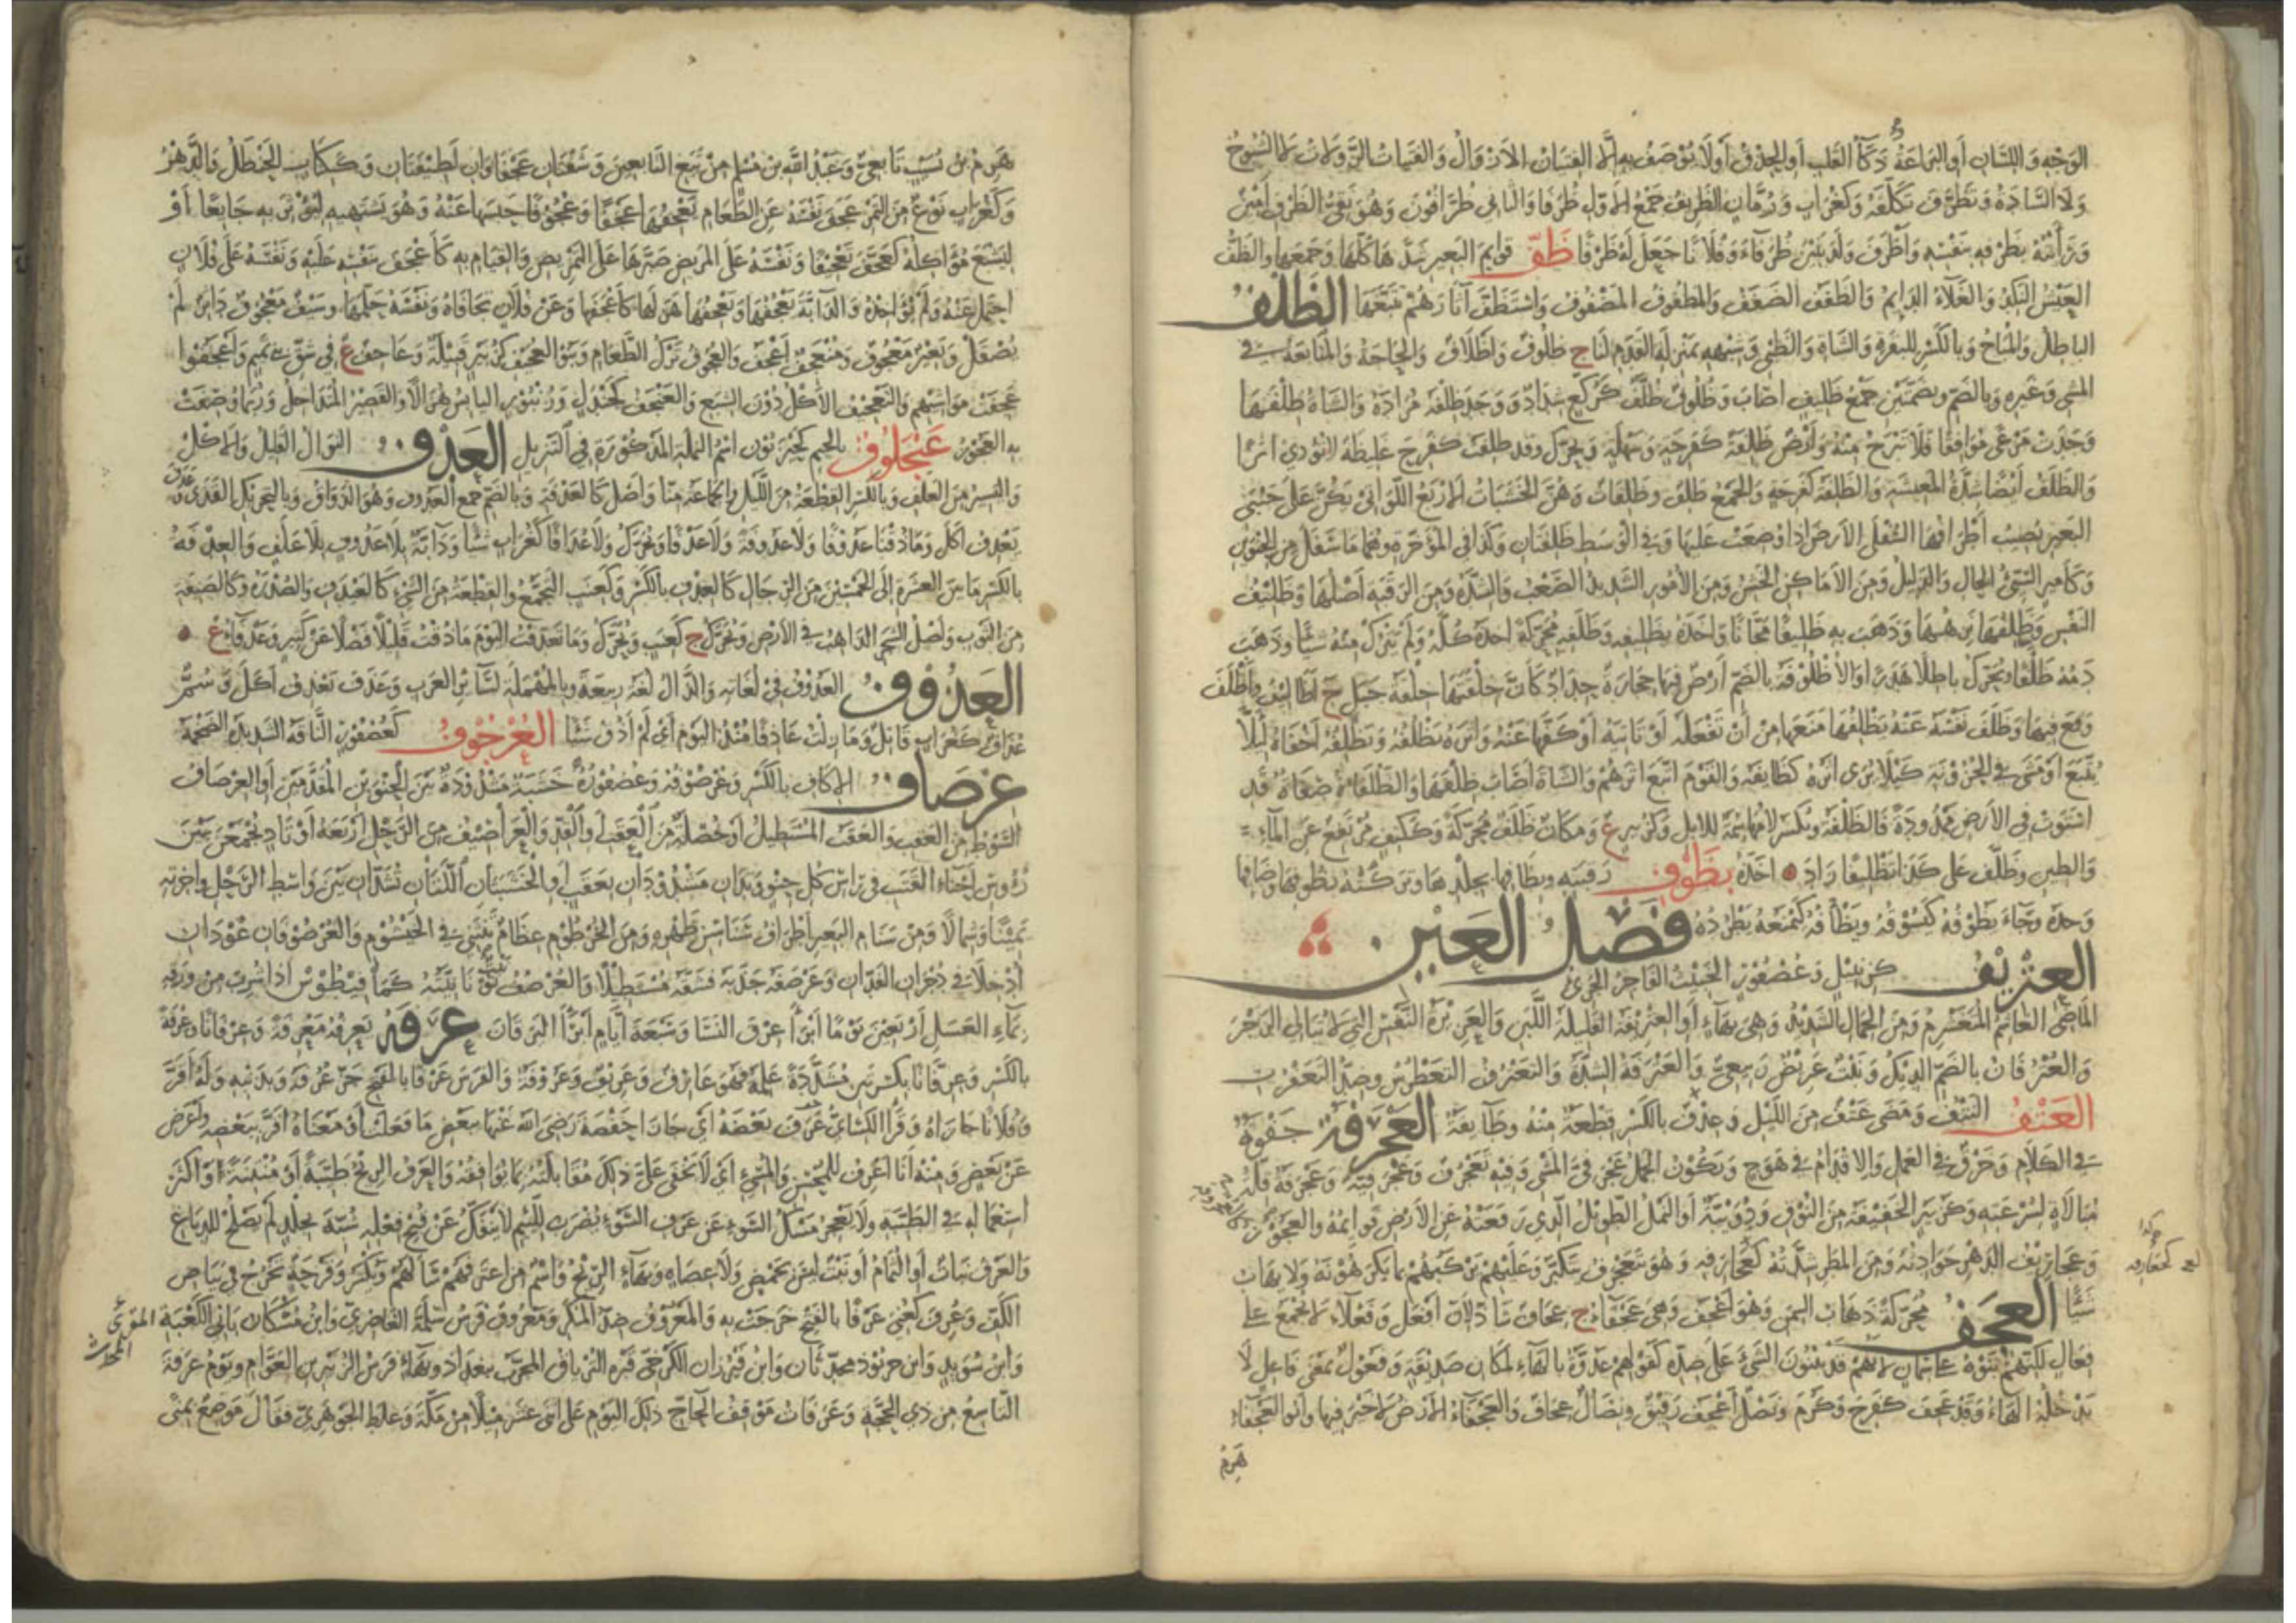 الوجه واللسان أو البراعة وذكاء القلب أو الحذق أو لا يوصف به إلا الفتيان الأزوال والفتيات الزولات لا الشيوخ
ولا السادة وتظرف تكلفه وكغراب ورمان الظريف جمع الأول ظرفا والثاني ظرافون وهو نقي الظرف أمين
ورأيته بظرفه بنفسه وأظرف ولد بنين ظرفاء وفلانا جعل له ظرفا ظف قوايم البعير شدها كلها وجمعها والظف
العيش النكد والغلاء الدايم والظفف الضفف والمظفوف المضفوف واستظف آثارهم تتبعها الظلف
الباطل والمباح وبالكسر للبقرة والشاة والظبي وشبهها بمنزلة القدم لنا ج ظلوف وأظلاف والحاجة والمتابعة في
المشي وغيره وبالضم وبضمتين جمع ظليف أصاب وظلوف ظلف كركع شداد ووجد ظلفه مراده والشاة ظلفها
وجدت مرعى موافقا فلا تبرح منه وأرض ظلفة كفرحة وسهلة ويحرك وقد ظلفت كفرح غليظة لا تؤدي أثرا
والظلف أيضا شدة المعيشة والظلفة كفرحة والجمع ظلف وظلفات وهن الخشبات الأربع اللواتي يكن على جنبي
البعير تصيب أطرافها السفلى الأرض إذا وضعت عليها وفي الوسط ظلفتان وكذا في المؤخرة وهما ما سفل من الحنوين
وكأمير السيئ الحال والذليل ومن الأماكن الخشن ومن الأمور الشديد الصعب والشدة ومن الرقبة أصلها وظليف
النفس وظلفها نزهها وذهب به ظليفا مجانا وأخذه بظليفه وظلفه محركة أخذه كله ولم يترك منه شيئا وذهب
دمه ظلفا ويحرك باطلا هدرا والأظلوفة بالضم أرض فيها حجارة حداد كأن خلقتها خلقة جبل ج أظاليف وأظلف
وقع فيها وظلف نفسه عنه يظلفها منعها من أن تفعله أو تأتيه أو كفها عنه وأثره يظلفه ويظلفه أخفاه ليلا
يتبع أو مشى في الحزونة كيلا يرى أثره كظالفه والقوم اتبع أثرهم والشاة أصاب ظلفها والظلفاء صفاة قد
استوت في الأرض ممدودة فالظلفة وتكسر لامها سمة للإبل وكزبير ع ومكان ظلف محركة وككتف مرتفع عن الماء
والطين وظلف على كذا تظليفا زاد أخذه بظوف رقبته وبظافها بجلدها وتركته بظوفها وظافها
وحده وجاء يظوفه كيسوقه ويظأفه كيمنعه يطرده فصل العين
العتريف كزنبيل وعصفور الخبيث الفاجر الجريء
الماضي الغاشم المتغشرم ومن الجمال الشديد وهي بهاء أو العتريفة القليلة اللبن والعزيزة النفس التي لا تبالي الزجر
والعترفان بالضم الديك ونبت عريض ربيعي والعترفة الشدة والتعترف التغطرس وضد التعفرت
العتف النتف ومضى عتف من الليل وعدف بالكسر قطعة منه وطايفة العجرفة جفوة
في الكلام وخرق في العمل والإقدام في هوج ويكون الجمل عجرفي المشي وفيه تعجرف وعجرفية وعجرفة قلة
مبالاة لسرعته وكزنبر الخفيفة من النوق ودويبة أو النمل الطويل الذي رفعته عن الأرض قوايمه والعجوز
وعجاريف الدهر حوادثه ومن المطر شدته كعجارفه وهو يتعجرف يتكبر وعليهم يركبهم بما يكرهونه ولا يهاب
شيئا العجف محركة ذهاب السمن وهو أعجف وهي عجفاء ج عجاف شاذ لأن أفعل وفعلاء لا تجمع على
فعال لكنهم بنوه على سمان لأنهم قد يبنون الشيء على ضده كقولهم عدوة بالهاء لمكان صديقة وفعول بمعنى فاعل لا
تدخله الهاء وقد عجف كفرح وكرم ونصل أعجف رقيق ونصال عجاف والعجفاء الأرض لا خير فيها وأبو العجفاء
هرم
هرم بن نسيب تابعي وعبد الله بن مسلم من تبع التابعين وشفتان عجفاوان لطيفتان وككتاب الحنظل والدهر
وكغراب نوع من التمر عجف نفسه عن الطعام يعجفها عجفا وعجوفا حبسها عنه وهو يشتهيه ليؤثر به جايعا أو
ليشبع مؤاكله كعجف تعجيفا ونفسه على المريض صبرها على التمريض والقيام به كأعجف بنفسه عليه ونفسه على فلان
احتمل عنه ولم يؤاخذه والدابة يعجفها ويعجفها هزلها كأعجفها وعن فلان تجافاه ونفسه حلمها وسيف معجوف داثر لم
يصقل وبعير معجوف ومنعجف أعجف والعجوف ترك الطعام وبنو العجيف كزبير قبيلة وعاجف ع في شق بني تميم وأعجفوا
عجفت مواشيهم والتعجيف الأكل دون الشبع والعنجف كجندل وزنبور اليابس هزالا والقصير المتداخل وربما وصفت
به العجوز عنجلوف بالجيم كحيزبون اسم النملة المذكورة في التنزيل العدف النوال القليل والأكل
واليسير من العلف وبالكسر القطعة من الليل والجماعة منا وأصل كالعدفة وبالضم جمع العدوف وهو الذواق وبالتحريك القذى
يعدف أكل وما ذقنا عدوفا ولا عدوفة ولا عدفا ويحرك ولا عدافا كغراب شيئا ودابة بلا عدوف بلا علف والعدفة
بالكسر ما بين العشرة إلى الخمسين من الرجال كالعدف بالكسر وكعنب التجمع والقطعة من الشيء كالعيدف والصدرة وكالصنفة
من الثوب وأصل الشجر الذاهب في الأرض ويحرك ج كعنب ويحرك وما تعدفت اليوم ما ذقت قليلا فضلا عن كثير وعدفاء ع
العذوف العدوف في لغاته والذال لغة ربيعة وبالمهملة لسائر العرب وعذف يعذف أكل وسم
عذاف كغراب قاتل وما زلت عاذفا منذ اليوم أي لم أذق شيئا العرجوف كعصفور الناقة الشديدة الضخمة
عرصاف الإكاف بالكسر وعرصوفه وعصفوره خشبة مشدودة بين الحنوين المقدمين أو العرصاف
السوط من العقب والعقب المستطيل أو خصلة من العقب أو القد والعراصيف من الرحل أربعة أوتاد يجمعن بين
رؤوس أحناء القتب في رأس كل حنو وتدان مشدودان بعقب أو الخشبتان اللتان تشدان بين واسط الرحل وآخرته
يمينا وشمالا ومن سنام البعير أطراف سناسن ظهره ومن الخرطوم عظام تنثني في الخيشوم والعرصوفان عودان
أدخلا في دجران الفدان وعرصفه جذبه فشقه مستطيلا والعرصف نوع نباته كمافيطوس إذا شرب من ورقه
بماء العسل أربعين يوما أبرأ عرق النسا وسبعة أيام أبرأ اليرقان عرفه يعرفه معرفة وعرفانا وعرفة
بالكسر وعرفانا بكسرتين مشددة علمه فهو عارف وعريف وعروفة والفرس عرفا بالفتح جز عرفه وبذنبه وله أقر
وفلانا جازاه وقرأ الكسائي عرف بعضه أي جازا حفصة رضي الله عنها ببعض ما فعلت أو معناه أقر ببعضه وأعرض
عن بعض ومنه أنا أعرف للمحسن والمسيء أي لا تخفى علي ذلك مقابلته بما توافقه والعرف الريح طيبة أو منتنة أو أكثر
استعماله في الطيبة ولا يعجز مسك السوء عن عرف السوء يضرب للئيم لا ينفك عن قبح فعله شبه بجلد لم يصلح للدباغ
والعرف نبات أو الثمام أو نبت ليس بحمض ولا عضاه وبهاء الريح واسم من اعترفهم سألهم وتكسر وقرحة تخرج في بياض
الكف وعرف كعني عرفا بالفتح خرجت به والمعروف ضد المنكر ومعروف فرس سلمة الغاضري وابن مشكان باني الكعبة
وابن سويد وابن خربوذ محدثان وابن فيرزان الكرخي قبره الترياق المجرب ببغداد وبهاء فرس الزبير بن العوام ويوم عرفة
التاسع من ذي الحجة وعرفات موقف الحاج ذلك اليوم على اثني عشر ميلا من مكة وغلط الجوهري فقال موضع بمنى